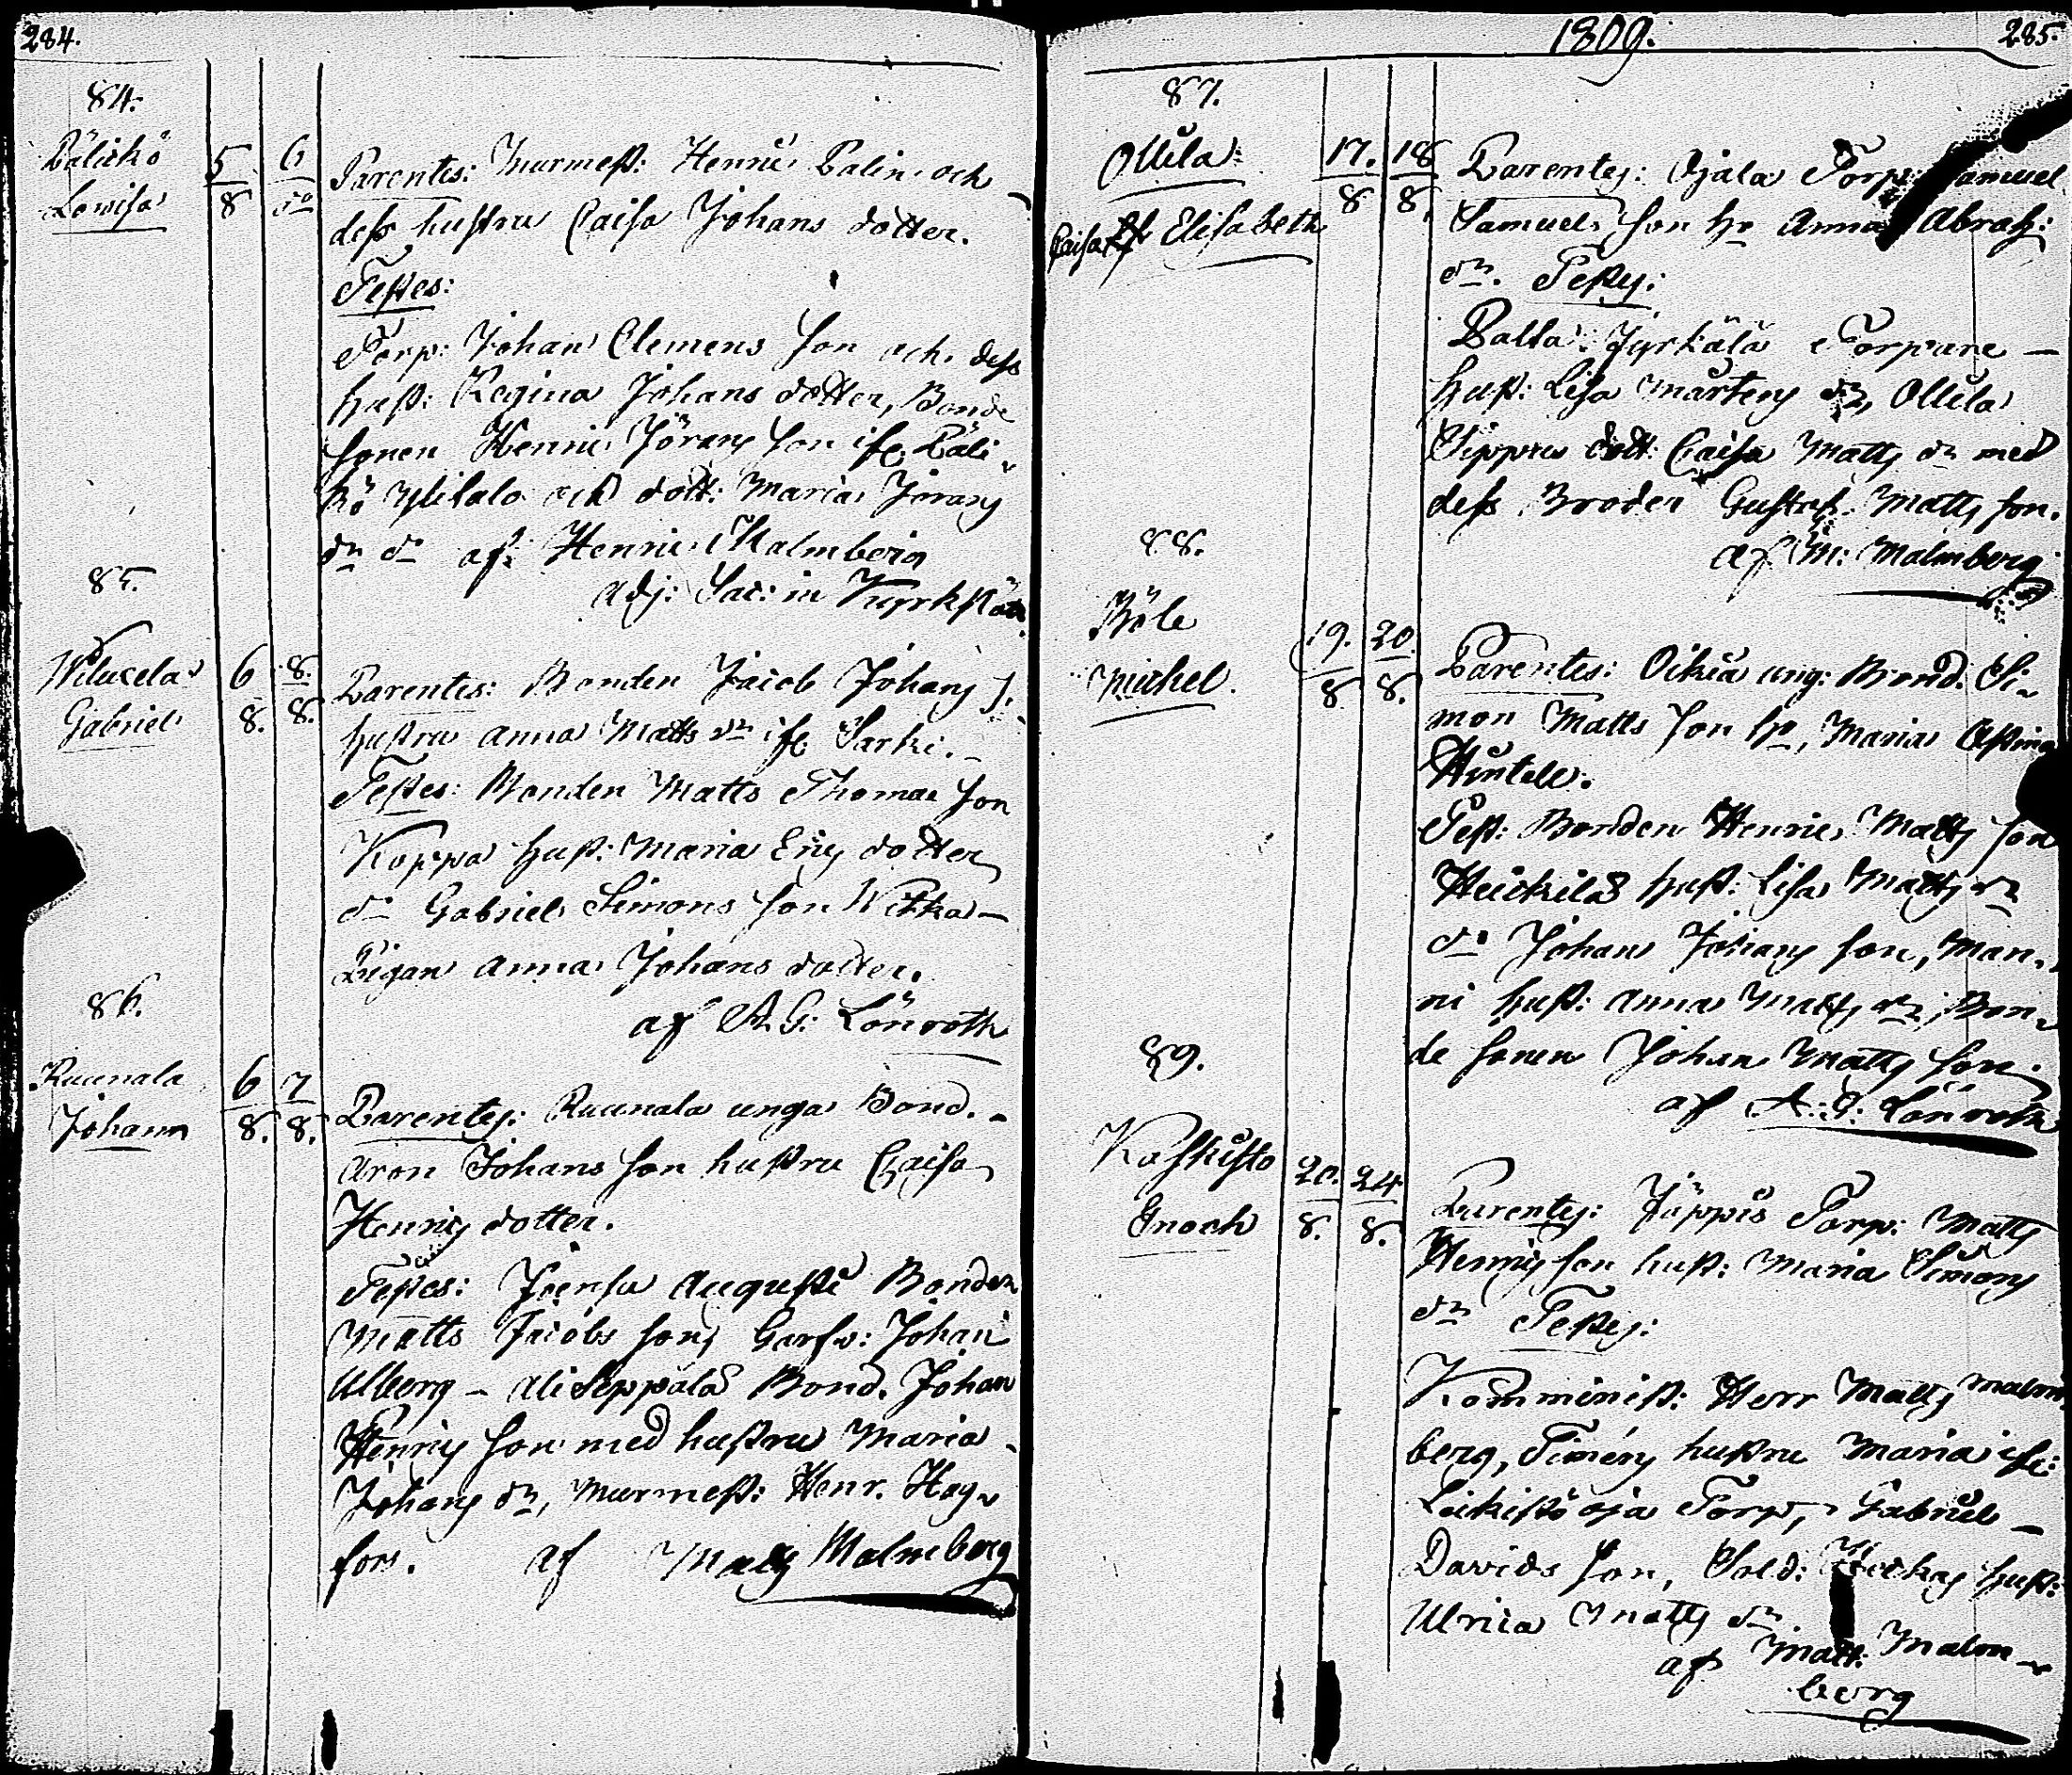 284.
84.
Pälickö
Lovisa
5 6
8 do
Parentes: Murmest: Henric Palin och
dess hustru Caisa Johans dotter.
Testes:
Torp: Johan Clemens son och dess
hust: Regina Johans dotter, Bonde
sonen Henric Jörans son ifr. Päli-
kö Ylitalo och dott: Maria Jörans
dr do af: Henric Malmberg
adj: Sac: in Kyrkslätt
85.
Wiluxela
Gabriel
6 8.
8. 8.
Parentes: Bonden Jacob Johans S.
hustru Anna Matts dr ifr. Sarki.
Testes: Bonden Matts Thomae son
Koppa hust: Maria Erics dotter
do Gabriel Simons son Witka-
Pigan Anna Johans dotter.
af A. G: Lönroth
86.
Ruunala
Johann
6 7
8. 8.
Parentes: Ruunala unga Bond.-
Aron Johans son hustru Caisa
Henrics dotter.
Testes: Joensu Augusti Bonden
Matts Jacobs son, Garfv: Johan
Ulberg - Ali Seppälä Bond. Johan
Henrics son med hustru Maria
Johans dr, Murmest: Henr. Hag-
fors. af Matts Malmberg
1809. 285.
87.
Ollila
Caisa Elisabeth
17. 18
8 8.
Parentes: Ojala Torp: Samuel
Samuels son hr Anna Abrah:
dr. Testes:
Palta Jyrkälä Torpare-
hust: Lisa Mårtens dr, Ollila
Sippus dott: Caisa Matts dr med
dess Broder Gustaf Matts son.
af M: Malmberg
88.
Böle
Michel.
19. 20.
8 8.
Parentes: Oikia ung: Bond. Si-
mon Matts son hr, Maria
Wintell.
Test: Bonden Henric Matts son
Heickilä hust: Lisa Matts dr
do Johan Johans son, Man-
ni hust: Anna Matts dr, Bon-
de sonen Johan Matts son.
af A. G: Lönroth
89.
Koskisto
Enoch
20. 24
8. 8.
Parentes: Jöppis Torp: Matts
Henrics son hust: Maria Simons
dr Testes:
Komminist: Herr Matts Malm
berg, hustru Maria ifr:
Leikistö oja Torp, Gabriel-
Davids son, Sold: hust:
Ulrica Matts dr
af Matt: Malm-
berg